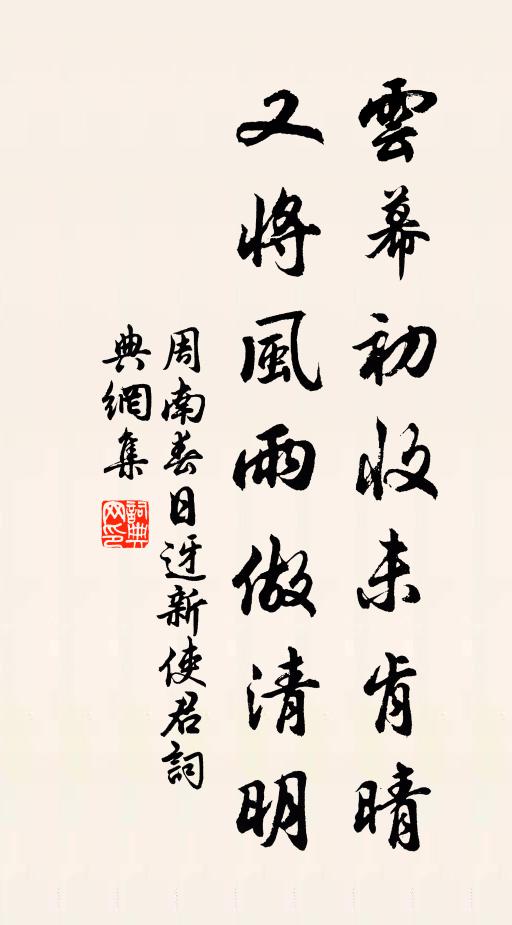 雲幕初收未肯晴
又將風雨做清明
周南春日迓新使君詞
典網集
詞典网印